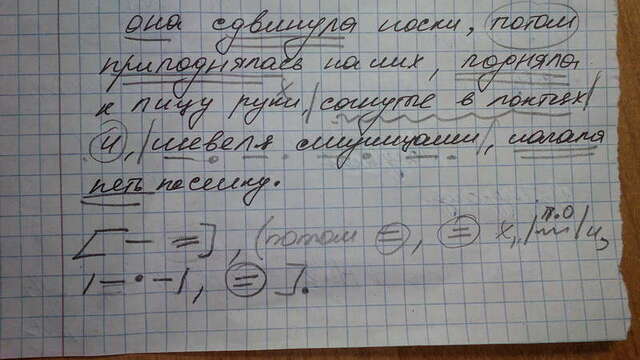 она сдвинула носки, потом
приподнялась на них, подняла
к лицу руки, /согнутые в локтях/
и, /шевеля смущаами/, начала
петь песенку.
[— =], (потом =, = х, /п.о/ и,
/—•—/, = ].